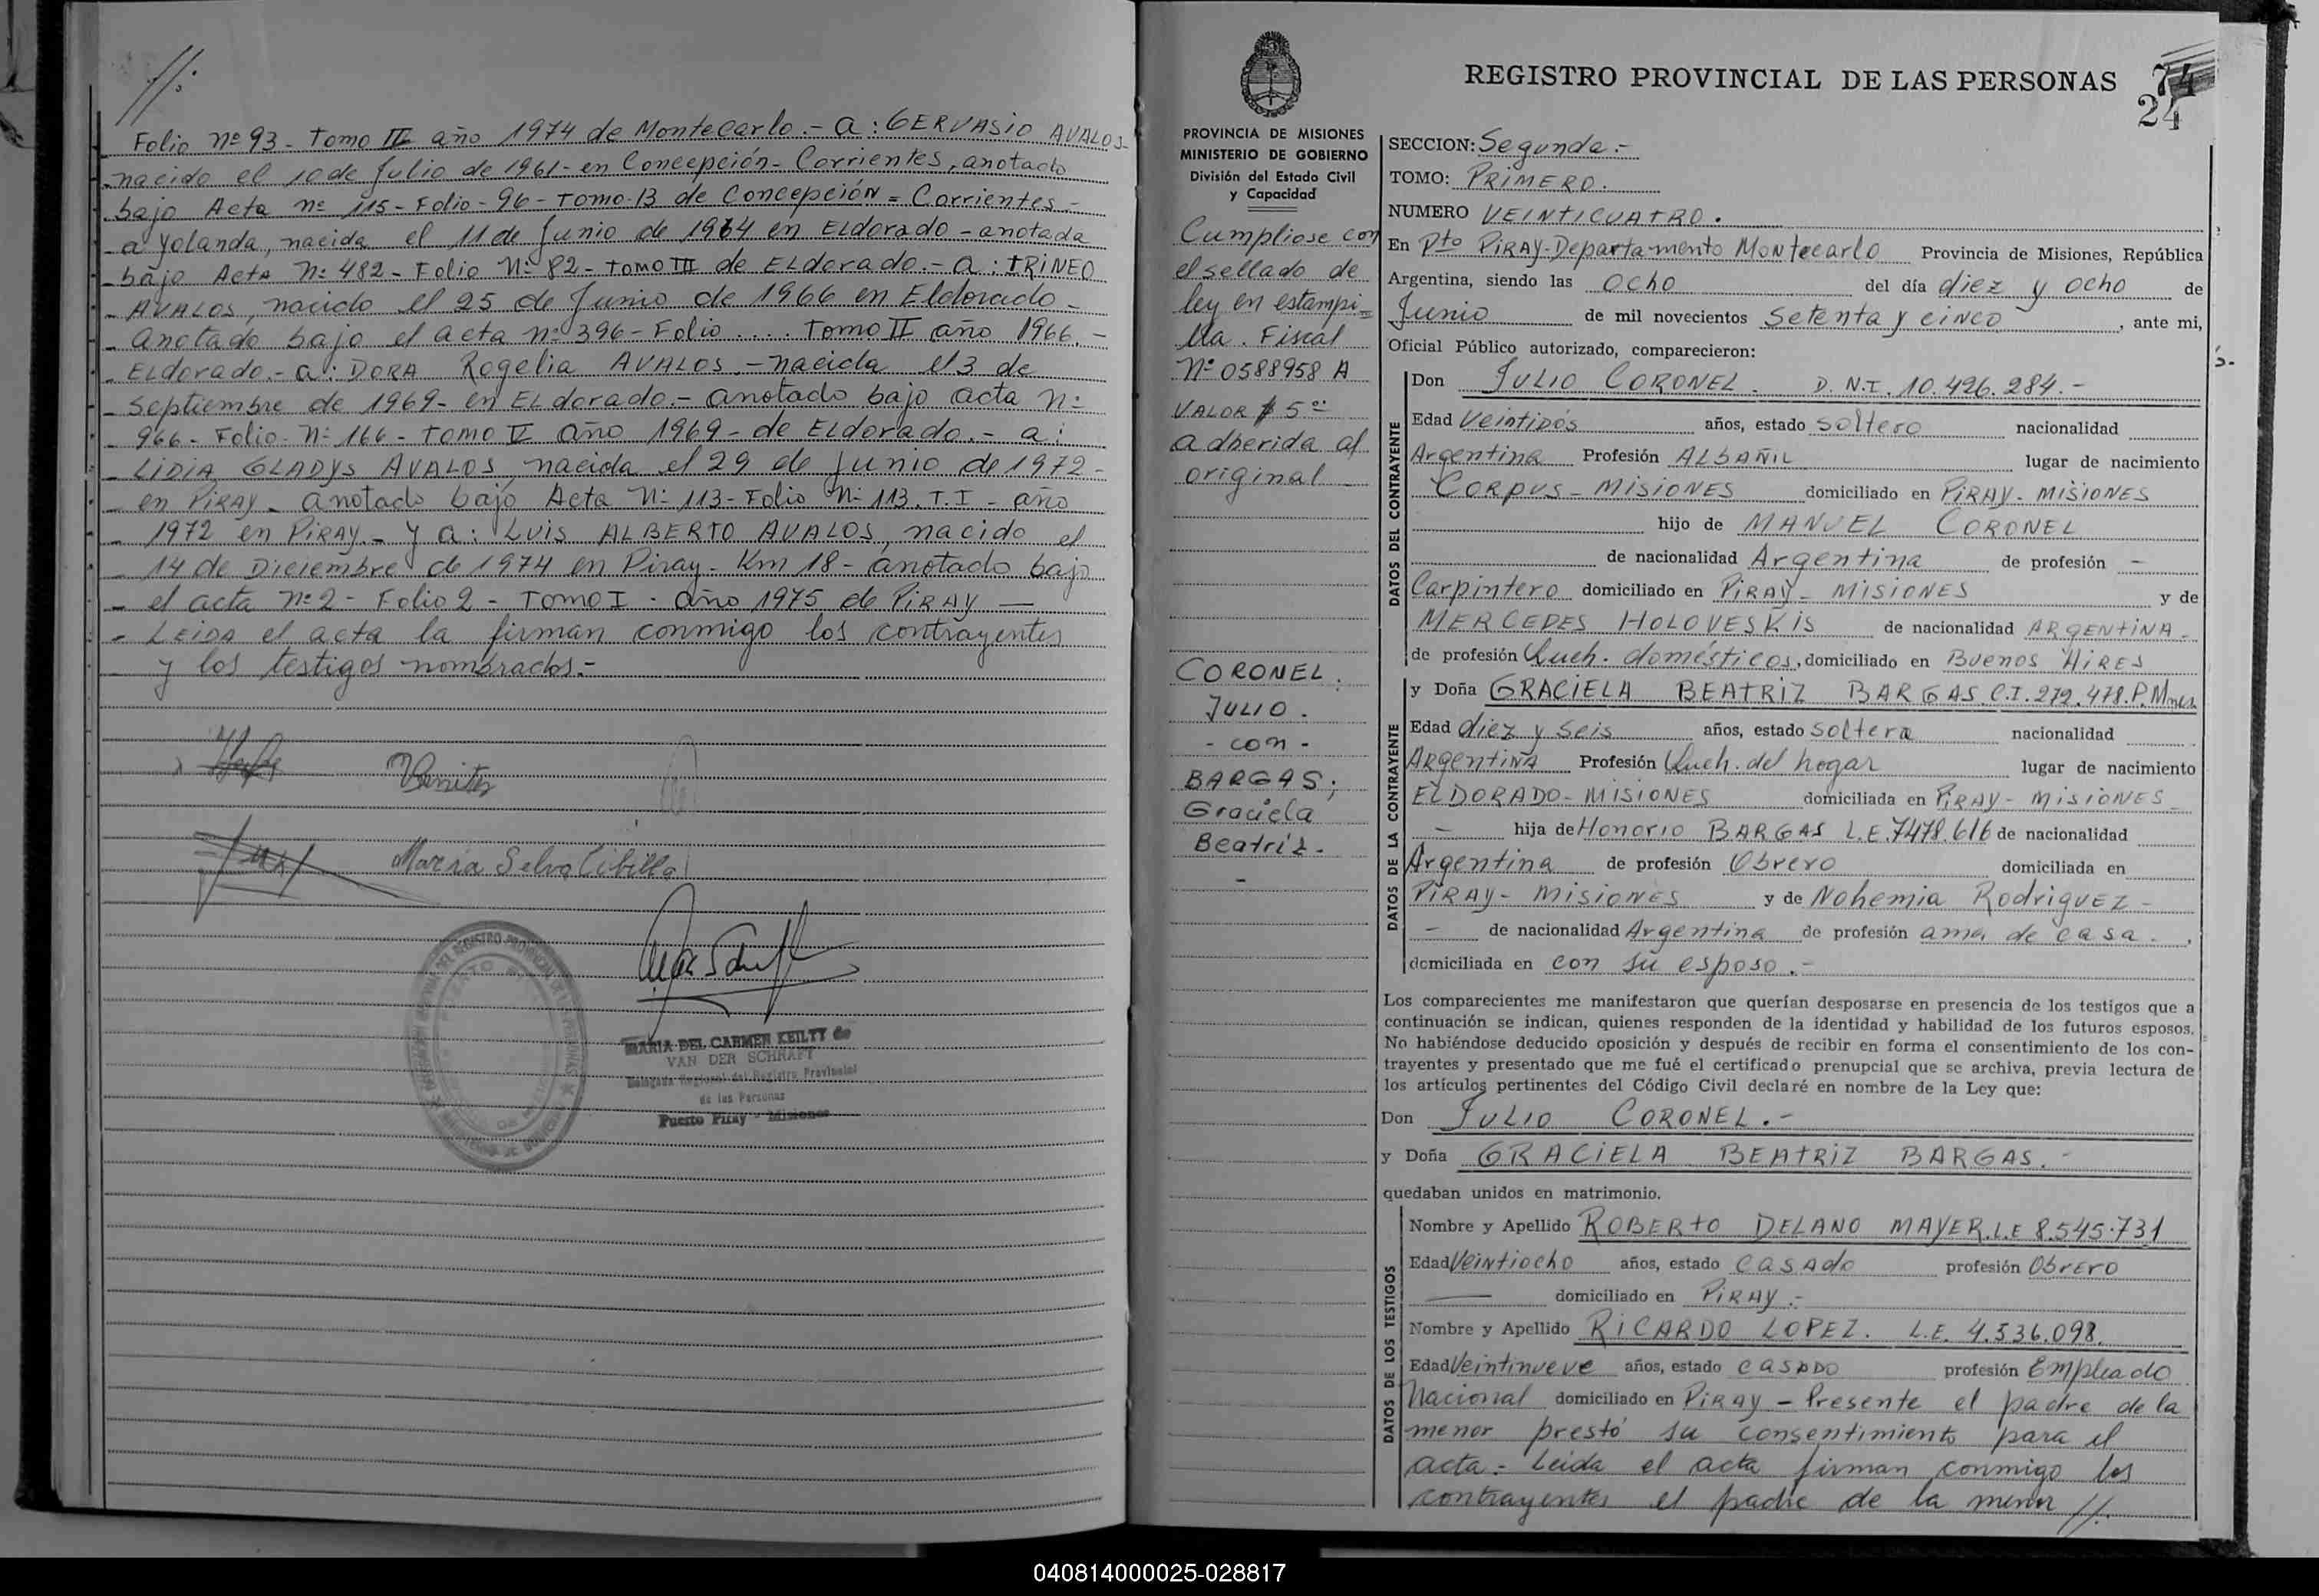 //.
Folio nº 93 - Tomo II año 1974 de Montecarlo.- a: GERVASIO AVALOS-
nacido el 10 de Julio de 1961- en Concepción- Corrientes, anotado
bajo Acta nº 115- Folio- 96- Tomo-13 de Concepción = Corrientes.-
a Yolanda, nacida el 11 de Junio de 1964 en ELdorado - anotada
bajo Acta Nº 482- Folio Nº 82- Tomo III de ELdorado.- a: IRINEO
AVALOS, nacido el 25 de Junio de 1966 en Eldorado-
anotado bajo el acta nº 396- Folio .... Tomo II año 1966.-
ELdorado.- a: DORA Rogelia AVALOS.- nacida el 3 de
septiembre de 1969- en ELdorado.- anotado bajo acta nº
966- Folio- Nº 166- Tomo año 1969- de ELdorado.- a:
LIDIA GLADYS AVALOS, nacida el 29 de Junio de 1972-
en PIRAY- anotado bajo Acta Nº 113- Folio Nº 113. T.I - año
1972 en PIRAY.- y a: LUIS ALBERTO AVALOS, nacido el
14 de Diciembre de 1974 en Piray- Km 18- anotado bajo
el acta nº 2- Folio 2 - Tomo I - año 1975 de PIRAY —
- LEIDA el acta la firman conmigo los contrayentes
y los testigos nombrados.-
Benitez
Maria Selva Cibilla
MARIA DEL CARMEN KEILTY de
VAN DER SCHRAFT
Delegada Regional del Registro Provincial
de las Personas
Puerto Piray - Misiones
REGISTRO PROVINCIAL DE LAS PERSONAS
74
24
PROVINCIA DE MISIONES
MINISTERIO DE GOBIERNO
División del Estado Civil
y Capacidad
Cumpliose con
el sellado de
ley en estampi=
lla. Fiscal
Nº 0588958 A
VALOR $ 5 ºº
adherida al
original -
CORONEL;
JULIO.
- con -
BARGAS;
Graciela
Beatriz-
SECCION: Segunda.-
TOMO: PRIMERO.
NUMERO VEINTICUATRO.
En Pto PIRAY-Departamento Montecarlo Provincia de Misiones, República
Argentina, siendo las Ocho del día diez y ocho de
Junio de mil novecientos Setenta y cinco, ante mi,
Oficial Público autorizado, comparecieron:
DATOS DEL CONTRAYENTE
Don JULIO CORONEL. D.N.I. 10.426.284.-
Edad Veintidós años, estado soltero nacionalidad
Argentina Profesión ALBAÑIL lugar de nacimiento
CORPUS - MISIONES domiciliado en PIRAY- MISIONES
hijo de MANUEL CORONEL
de nacionalidad Argentina de profesión -
Carpintero domiciliado en PIRAY- MISIONES y de
MERCEDES HOLOVESKIS de nacionalidad ARGENTINA-
de profesión Queh. domésticos, domiciliado en Buenos AIRES
DATOS DE LA CONTRAYENTE
y Doña GRACIELA BEATRIZ BARGAS C.I. 272.478. P.Mnes.
Edad diez y seis años, estado soltera nacionalidad
ARgentina Profesión Queh. del hogar lugar de nacimiento
ELDORADO- MISIONES domiciliada en PIRAY- MISIONES-
- hija de Honorio BARGAS L.E. 7478.616 de nacionalidad
Argentina de profesión Obrero domiciliada en
PIRAY- MISIONES y de Nohemia Rodriguez-
- de nacionalidad Argentina de profesión ama de casa.-,
domiciliada en con su esposo.-
Los comparecientes me manifestaron que querían desposarse en presencia de los testigos que a
continuación se indican, quienes responden de la identidad y habilidad de los futuros esposos.
No habiéndose deducido oposición y después de recibir en forma el consentimiento de los con-
trayentes y presentado que me fué el certificado prenupcial que se archiva, previa lectura de
los artículos pertinentes del Código Civil declaré en nombre de la Ley que:
Don JULIO CORONEL.-
y Doña GRACIELA BEATRIZ BARGAS.-
quedaban unidos en matrimonio.
DATOS DE LOS TESTIGOS
Nombre y Apellido ROBERTO DELANO MAYER. L.E 8.545.731
Edad Veintiocho años, estado CASAdo profesión Obrero
— domiciliado en PIRAY.-
Nombre y Apellido RICARDO LOPEZ. L.E. 4.536.098.
Edad Veintinueve años, estado CASADO profesión Empleado
Nacional domiciliado en PIRAY - Presente el padre de la
menor prestó su consentimiento para el
acta.- Leida el acta firman conmigo los
contrayentes el padre de la menor //.
040814000025-028817